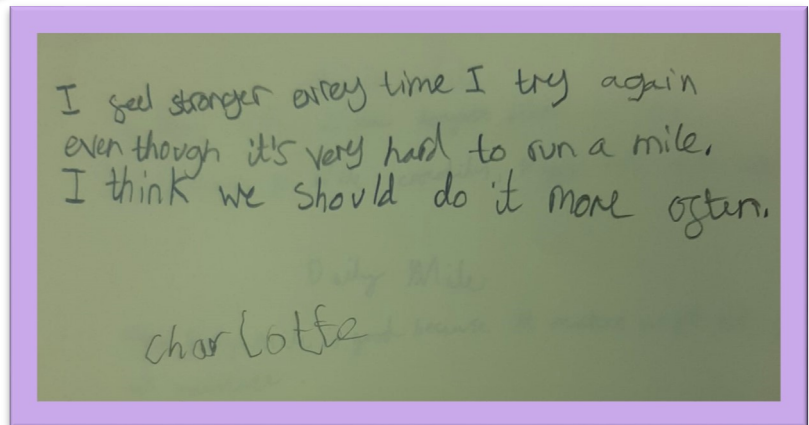 I feel stronger eviey time I try again
even though it's very hard to run a mile.
I think we should do it more often.
Daily Mile
because it makes
charlotte